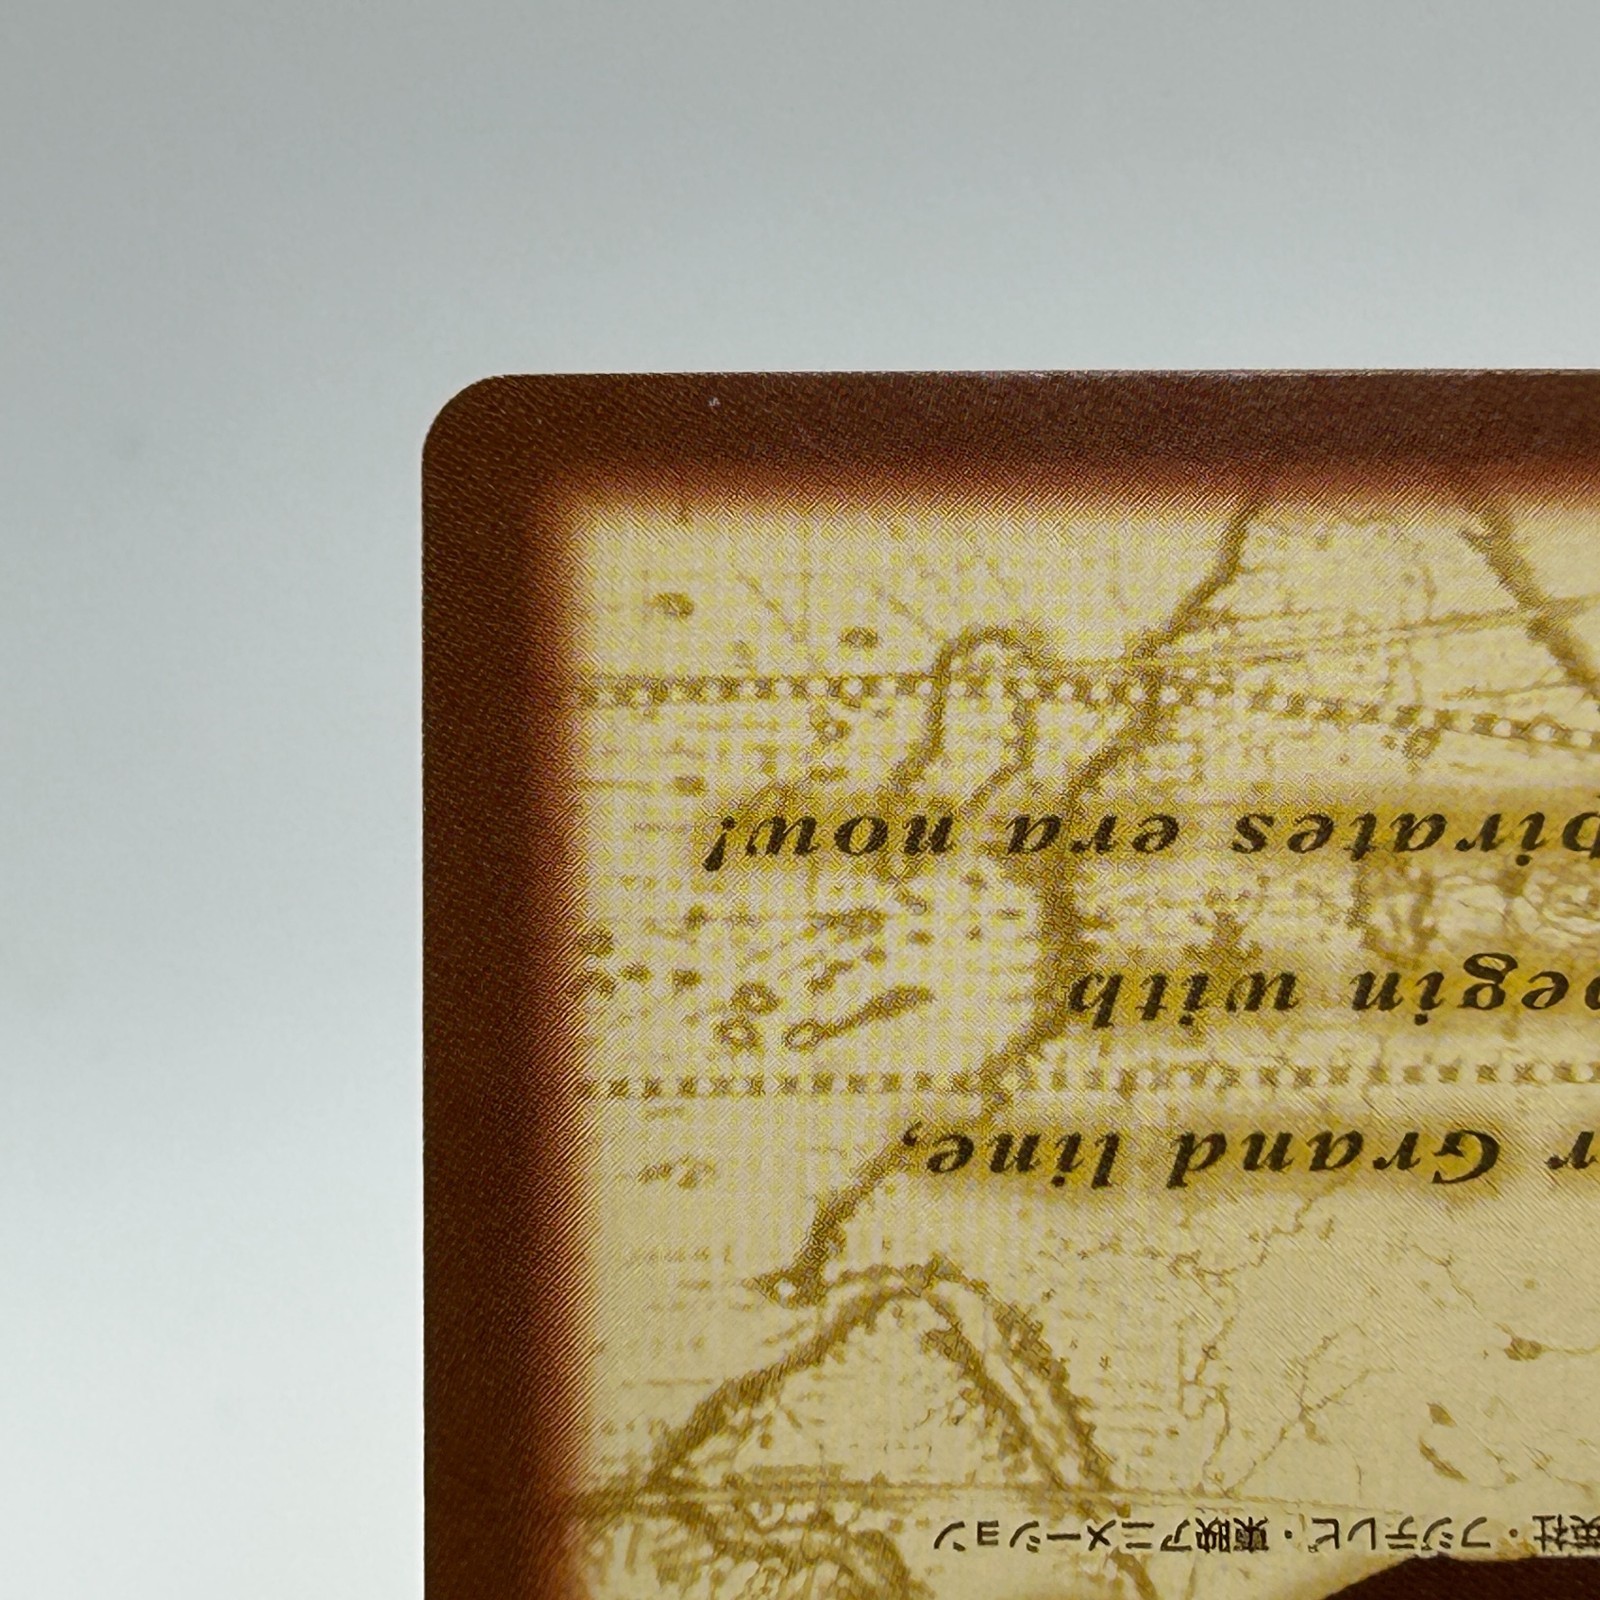 英社・フジテレビ・東映アニメーション
r Grand line,
begin with
pirates era now!